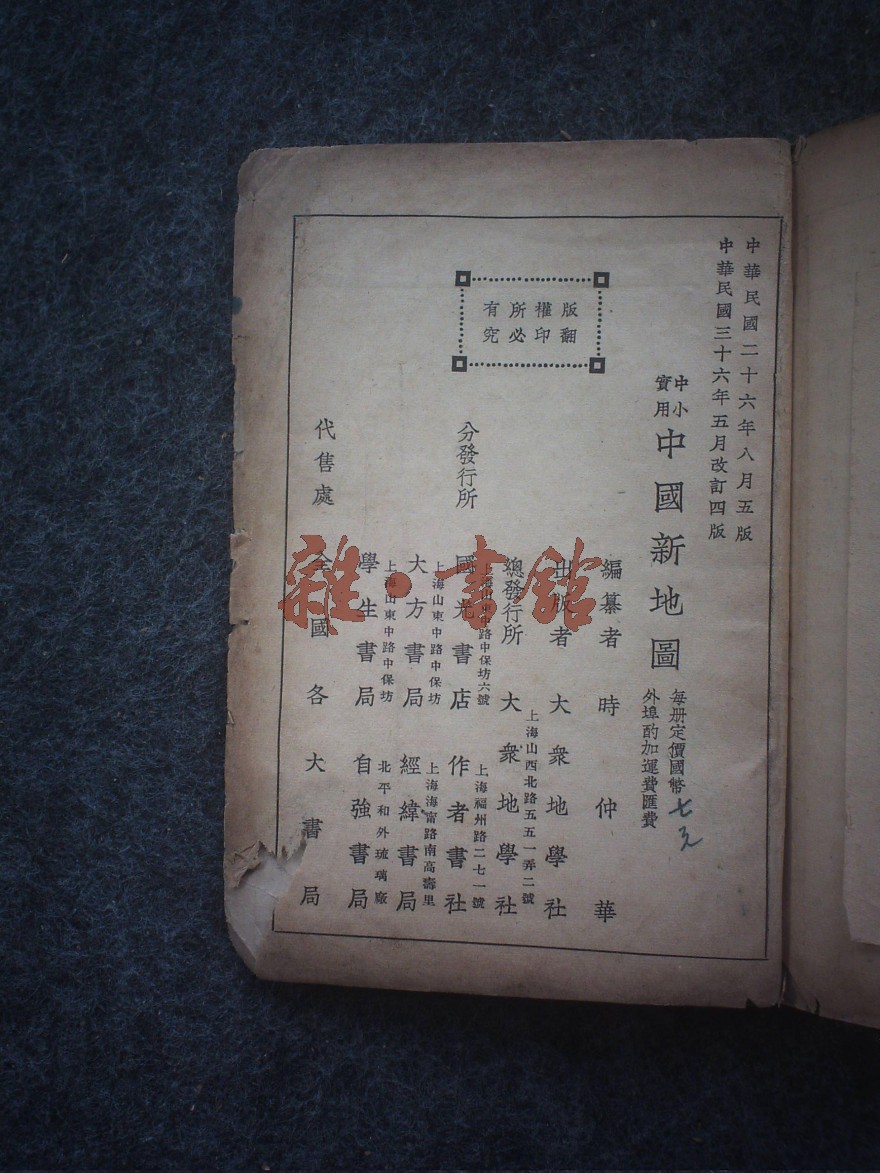 中華民國二十六年八月五版
中華民國三十六年五月改訂四版
中小
實用
中國新地圖
每册定價國幣七元
外埠酌加運費匯費
版權所有
翻印必究
編纂者 時仲華
出版者 大衆地學社
上海山西北路五五一弄二號
總發行所 大衆地學社
分發行所
上海山東中路中保坊六號
國光書店
上海福州路二七一號
作者書社
上海山東中路中保坊
大方書局
上海海甯路南高壽里
經緯書局
上海山東中路中保坊
學生書局
北平和外琉璃廠
自強書局
代售處 全國各大書局
雜·書館